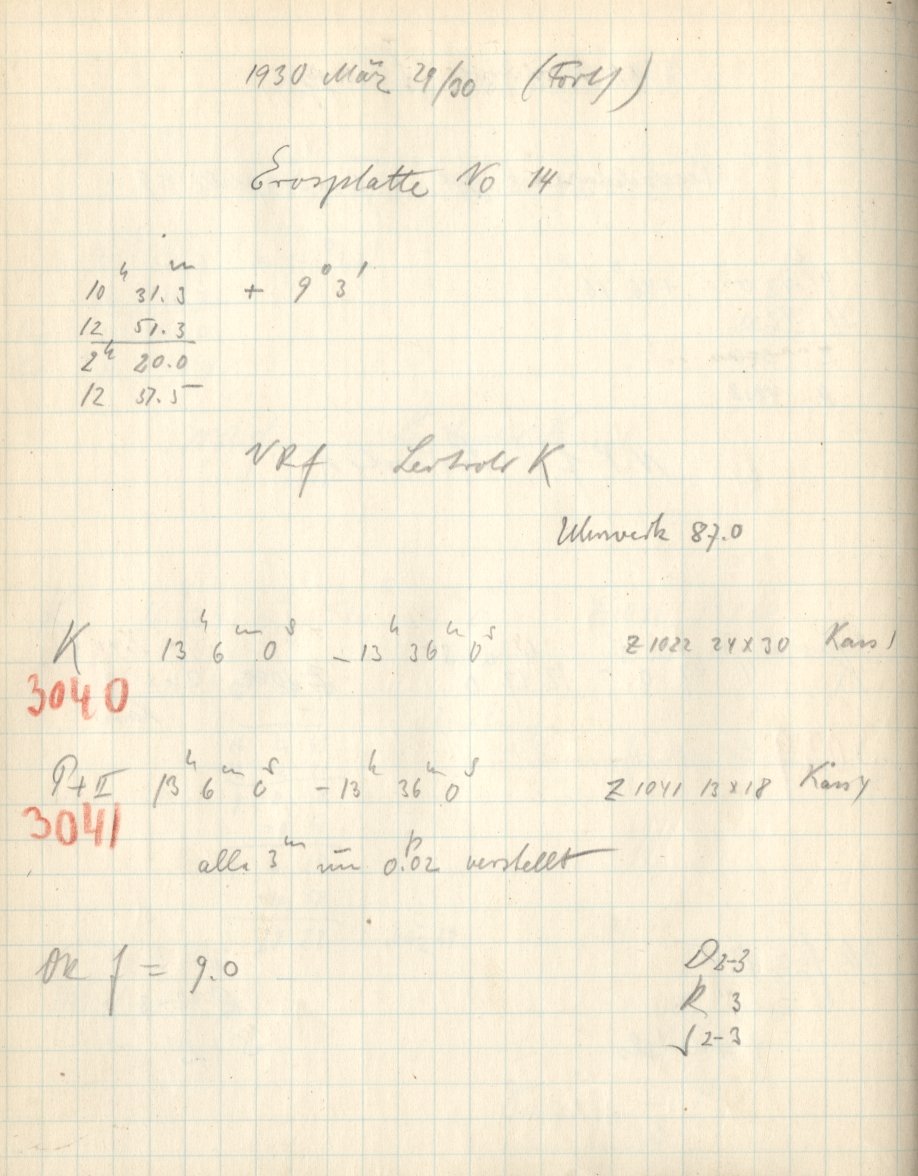 1930 März 29/30 (Forts)
Erosplatte No 14
10h 31.3m + 9° 3'
12 51.3
2h 20.0
12 37.5
VRf Leitrohr K
Uhrwerk 87.0
K 13h 6m 0s – 13h 36m 0s Z 1022 24x30 Kass 1
3040
P+II 13h 6m 0s – 13h 36m 0s Z 1041 13x18 Kass 4
3041
alle 3m um 0.02 verstellt
OR f = 9.0
D 2-3
R 3
J 2-3